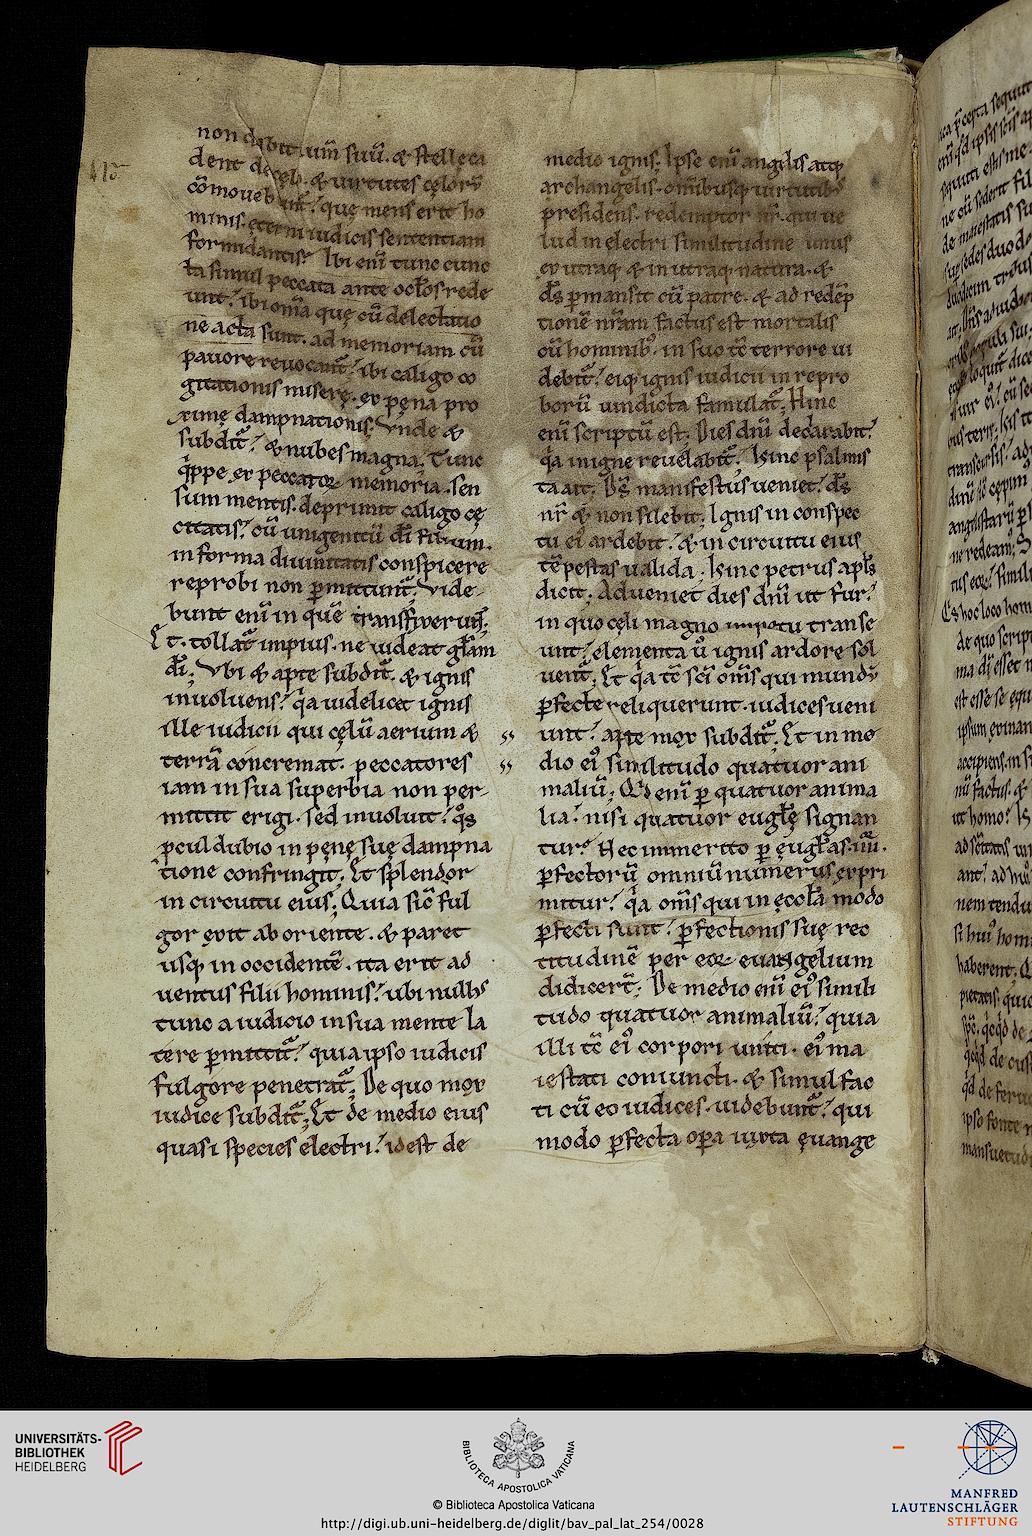 415
non dabit lum̄ suū. & stelle ca
dent de cęlo. & uirtutes cęlorū
cōmouebunt̄. quę mens erit ho
minis. ęterni iudicis sententiam
formidantis? Ibi enī tunc cunc
ta simul peccata ante oc̄los rede
unt. ibi om̄a quę cū delectatio
ne acta sunt. ad memoriam cū
pauore reuocant̄. ibi caligo co
gitationis miserę. ex pęna pro
ximę dampnationis. Vnde &
subdit̄. & nubes magna. Tunc
q̄ppe ex peccatoꝝ memoria. sen
sum mentis. deprimit caligo cę
citatis. cū unigenitū dī filium.
in forma diuinitatis conspicere
reprobi non ꝑmittunt̄. Vide
bunt enī in quē transfixerunt̄.
Et. tollat̄ impius. ne uideat gl̄am
dī. Vbi & apte subdit̄. & ignis
inuoluens. q̄a uidelicet ignis
ille iudicii qui cęlū aerium &
terrā concremat. peccatores
iam in sua superbia non per-
mittit erigi. sed inuoluit. q̊s
p̱cul dubio in pęnę suę dampna
tione confringit. Et splendor
in circuitu eius. Quia sic̄ ful
gor exit ab oriente. & paret
usq; in occidentē. ita erit ad
uentus filii hominis. ubi nullus
tunc a iudicio in sua mente la
tere ꝑmittit̄. quia ipso iudicis
fulgore penetrat̄. De quo mox
iudice subdit̄. Et de medio eius
quasi species electri. id est de
medio ignis. Ipse enī angelis atq;
archangelis. omībusq; uirtutib;
presidens. redemptor nr̄. qui ue
lud in electri similitudine unus
ex utraq; & in utraq; natura. &
ds̄ ꝑmansit cū patre. & ad redēp
tionē nrām factus est mortalis
cū hominib;. in suo tc̄ terrore ui
debit̄. eiq; ignis iudicii in repro
borū uindicta famulat̄. Hinc
enī scriptū est. Dies dnī declarabit.
q̄a in igne reuelabit̄. Hinc psalmis
ta ait. Ds̄ manifestus ueniet. ds̄
nr̄ & non silebit. Ignis in conspec
tu ei' ardebit. & in circuitu eius
tēpestas ualida. Hinc petrus apls̄
dicit. Adueniet dies dnī ut fur.
in quo cęli magno impetu transe
unt. elementa ū ignis ardore sol
uent̄. Et q̄a tc̄ scī om̄s qui mundū
ꝑfecte reliquerunt. iudices ueni
unt. apte mox subdit̄. Et in me
dio ei' similitudo quatuor ani
maliū. Qd enī ꝑ quatuor anima
lia. nisi quatuor eugl̄ę signan
tur? Nec inmerito ꝑ eugl̄as. iiii.
ꝑfectorū omniū numerus expri
mitur. q̄a om̄s qui in ęccl̄a modo
ꝑfecti sunt. ꝑfectionis suę rec
titudinē per eoꝝ euangelium
didicert̄. De medio enī ei' simili
tudo quatuor animaliū. quia
illi tc̄ ei' corpori uniti. ei' ma
iestati coniuncti. & simul fac
ti cū eo iudices. uidebunt̄. qui
modo ꝑfecta oꝑa iuxta ęuange
UNIVERSITÄTS-
BIBLIOTHEK
HEIDELBERG
BIBLIOTECA APOSTOLICA VATICANA
© Biblioteca Apostolica Vaticana
http://digi.ub.uni-heidelberg.de/diglit/bav_pal_lat_254/0028
MANFRED
LAUTENSCHLÄGER
STIFTUNG